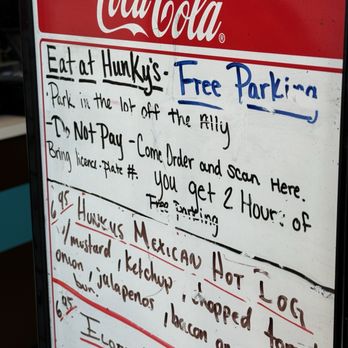 Coca-Cola®
Eat at Hunky's - Free Parking
Park in the lot off the Ally
Do Not Pay - Come Order and scan Here.
Bring licence-plate #. you get 2 Hours of
Free parking
6.95 Hunkys Mexican Hot Log
w/mustard, ketchup, chopped
onion, jalapenos, bacon on
bun
6.95